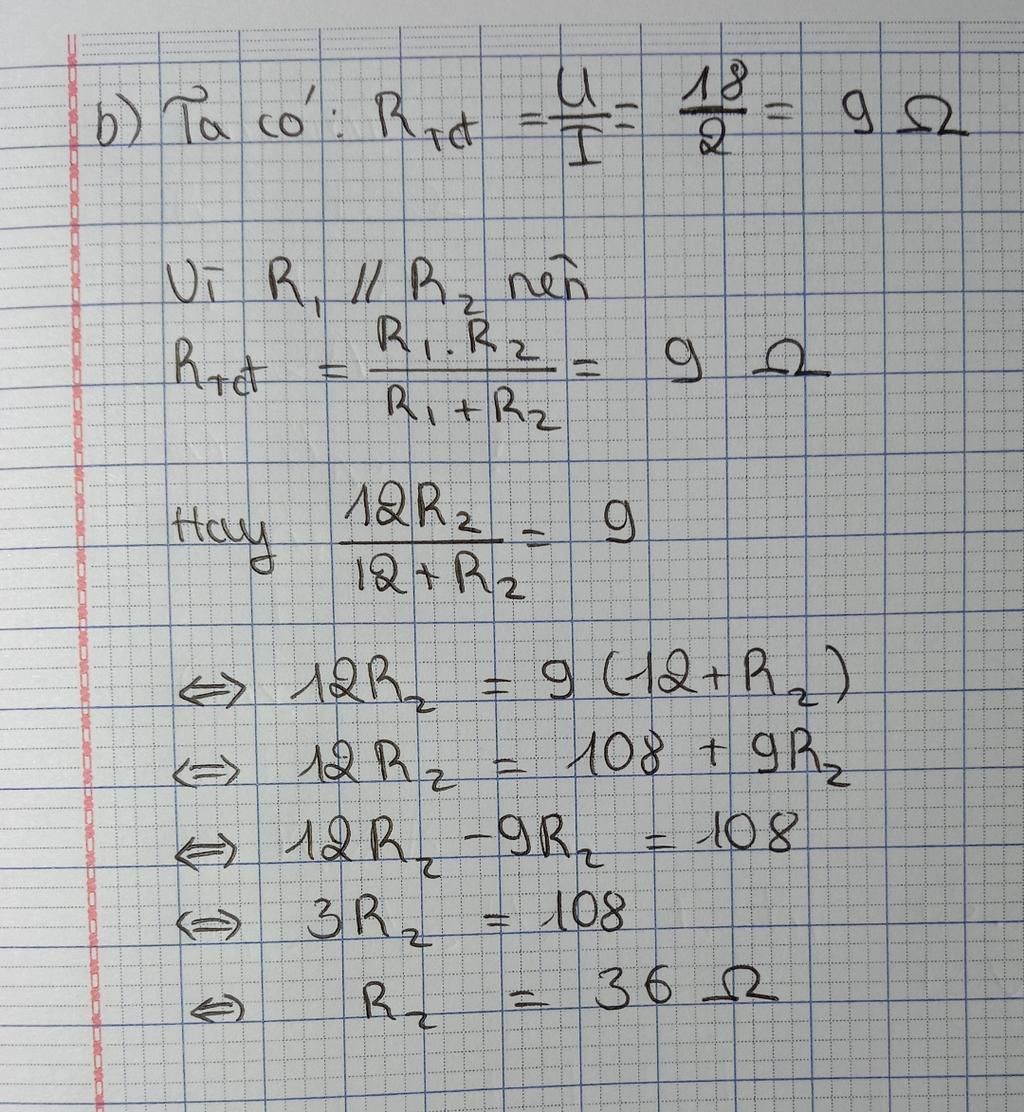 b) Ta có: R_tđ = U/I = 18/2 = 9 Ω
Vì R₁ // R₂ nên
R_tđ = (R₁ . R₂)/(R₁ + R₂) = 9 Ω
Hay 12R₂/(12 + R₂) = 9
⇔ 12R₂ = 9 (12 + R₂)
⇔ 12R₂ = 108 + 9R₂
⇔ 12R₂ - 9R₂ = 108
⇔ 3R₂ = 108
⇔ R₂ = 36 Ω